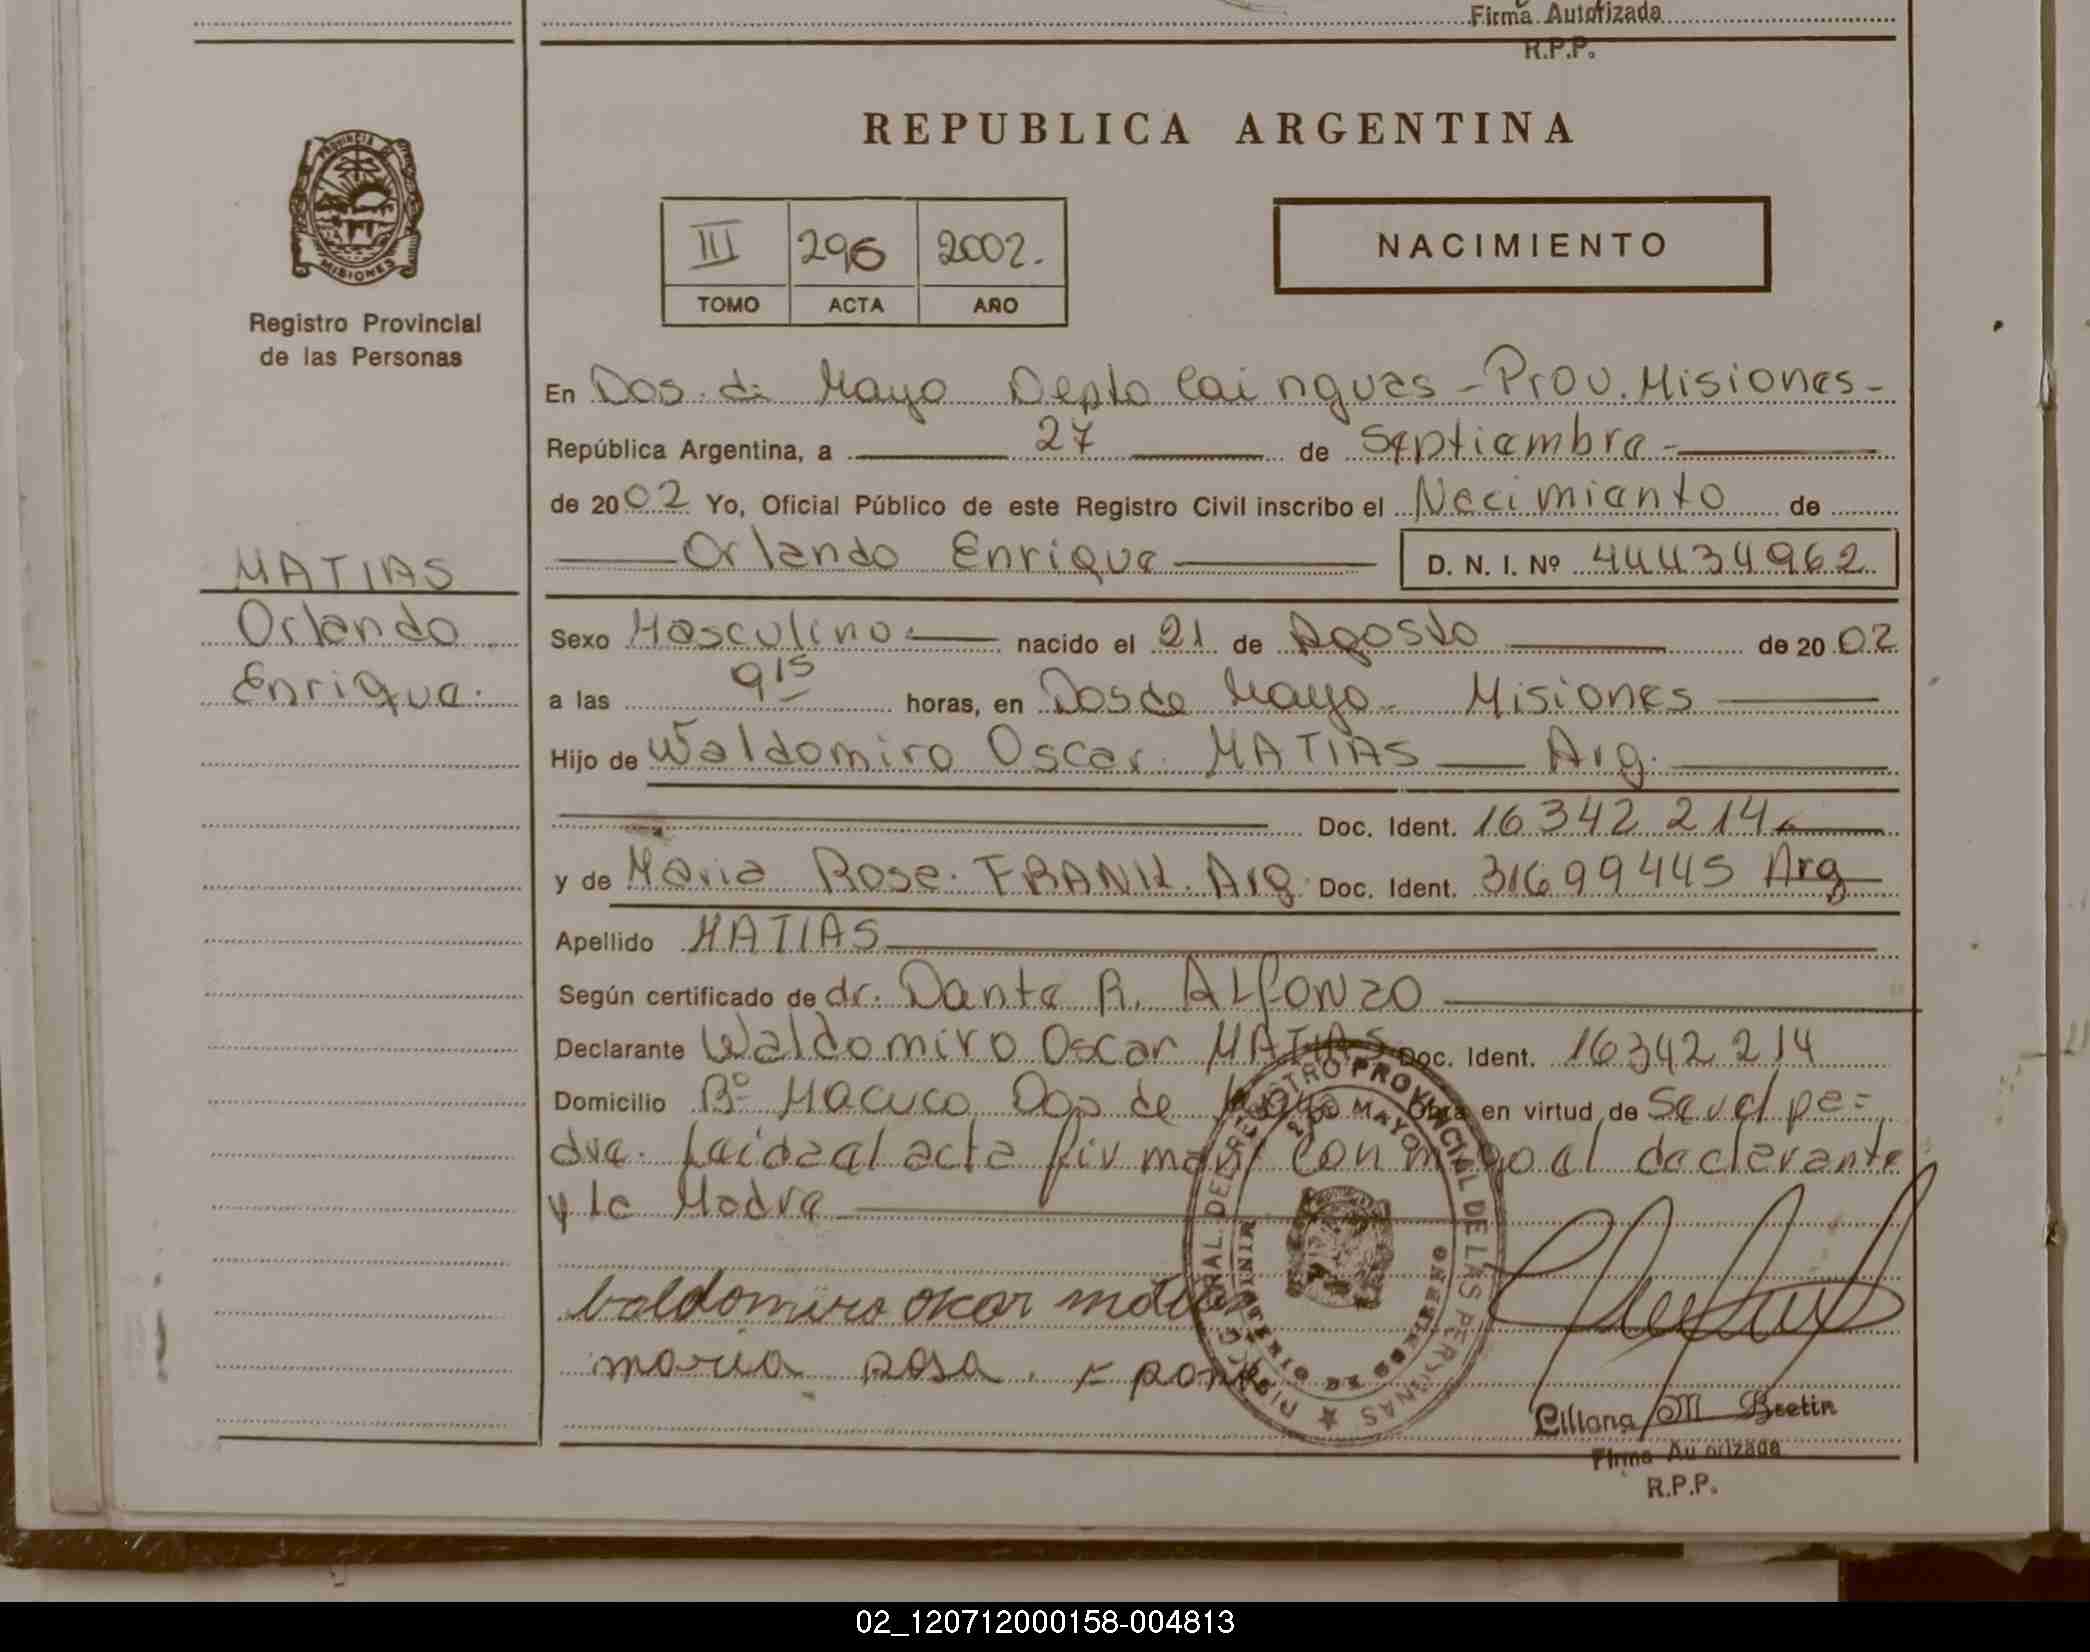 Firma Autorizada
R.P.P.
REPUBLICA ARGENTINA
PROVINCIA DE
MISIONES
Registro Provincial
de las Personas
III 296 2002.
TOMO ACTA AÑO
NACIMIENTO
En Dos de Mayo Depto Cainguas - Prov. Misiones -
República Argentina, a 27 de Septiembre -
de 2002 Yo, Oficial Público de este Registro Civil inscribo el Nacimiento de
Orlando Enrique D. N. I. Nº 44434962
MATIAS
Orlando
Enrique.
Sexo Masculino. nacido el 21 de Agosto de 2002
a las 9 15 horas, en Dos de Mayo - Misiones
Hijo de Waldomiro Oscar MATIAS Arg.
Doc. Ident. 16342214
y de Maria Rosa. FRANK. Arg. Doc. Ident. 31699445 Arg
Apellido MATIAS
Según certificado de dr. Dante R. ALFONZO
Declarante Waldomiro Oscar MATIAS Doc. Ident. 16342214
Domicilio Bº Macuco Dos de Mayo Obra en virtud de Ser el pa=
dre. Leida el acta firman Conmigo el declarante
y la Madre
baldomiro oscar matias
maria rosa. Frank
DIRECC. GRAL. DEL REGISTRO PROVINCIAL DE LAS PERSONAS
2 DE MAYO
MINISTERIO DE GOBIERNO
Liliana M Bretin
Firma Autorizada
R.P.P.
02_120712000158-004813